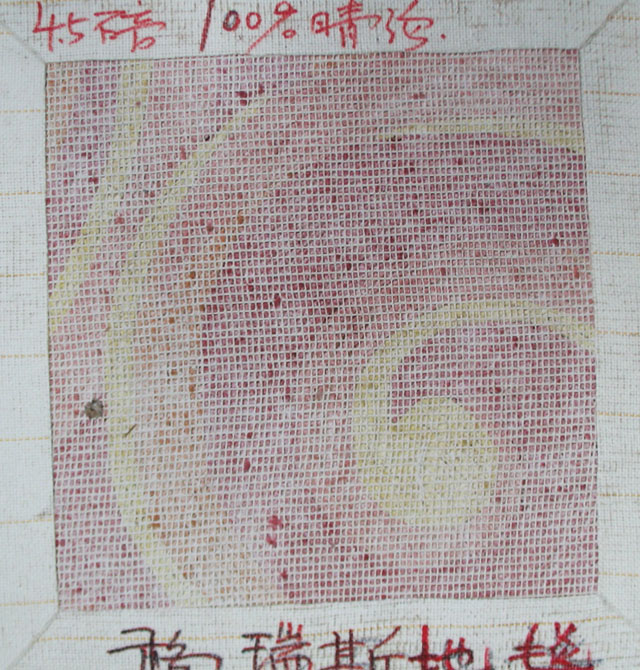 4.5磅 100%晴纶.
格瑞斯地毯